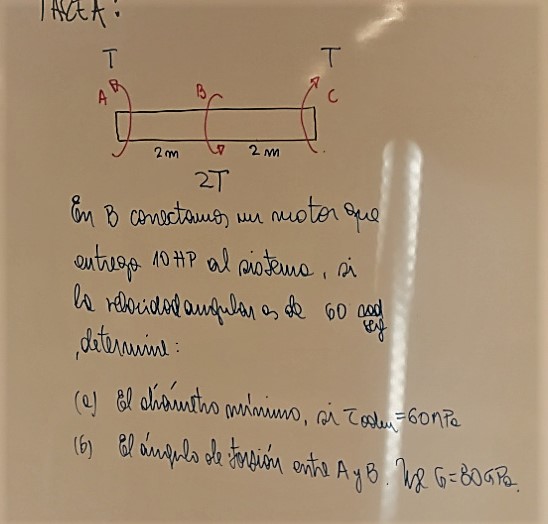 TAREA:
T T
A B C
2m 2m
2T
En B conectamos un motor que
entrega 10 HP al sistema, si
la velocidad angular es de 60 rad/seg
, determine:
(a) El diámetro mínimo, si τadm = 60 MPa
(b) El ángulo de torsión entre A y B. Use G = 80 GPa.